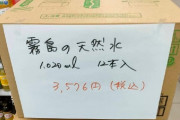 霧島の天然水
1,020ml 12本入
3,576円(税込)